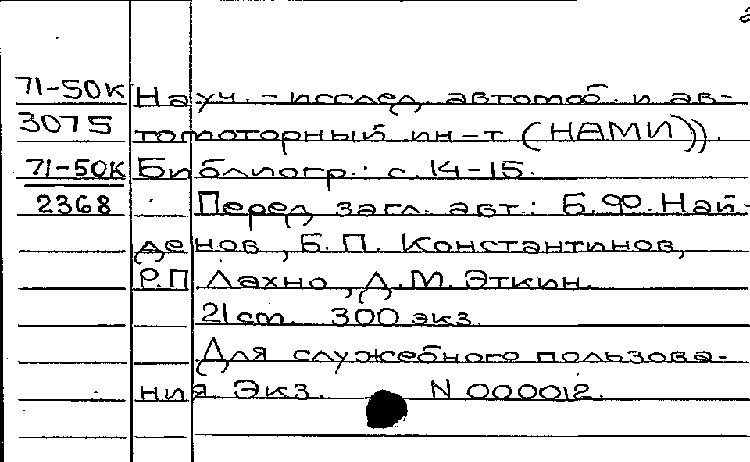 71-50К Науч.-исслед. автомоб. и ав-
3075 томоторный ин-т (НАМИ)).
71-50К Библиогр.: с. 14-15.
2368 Перед загл. авт.: Б.Ф. Най-
денов, Б.П. Константинов,
Р.П. Лахно, Д.М. Эткин.
21 см. 300 экз.
Для служебного пользова-
ния. Экз. N 000012.